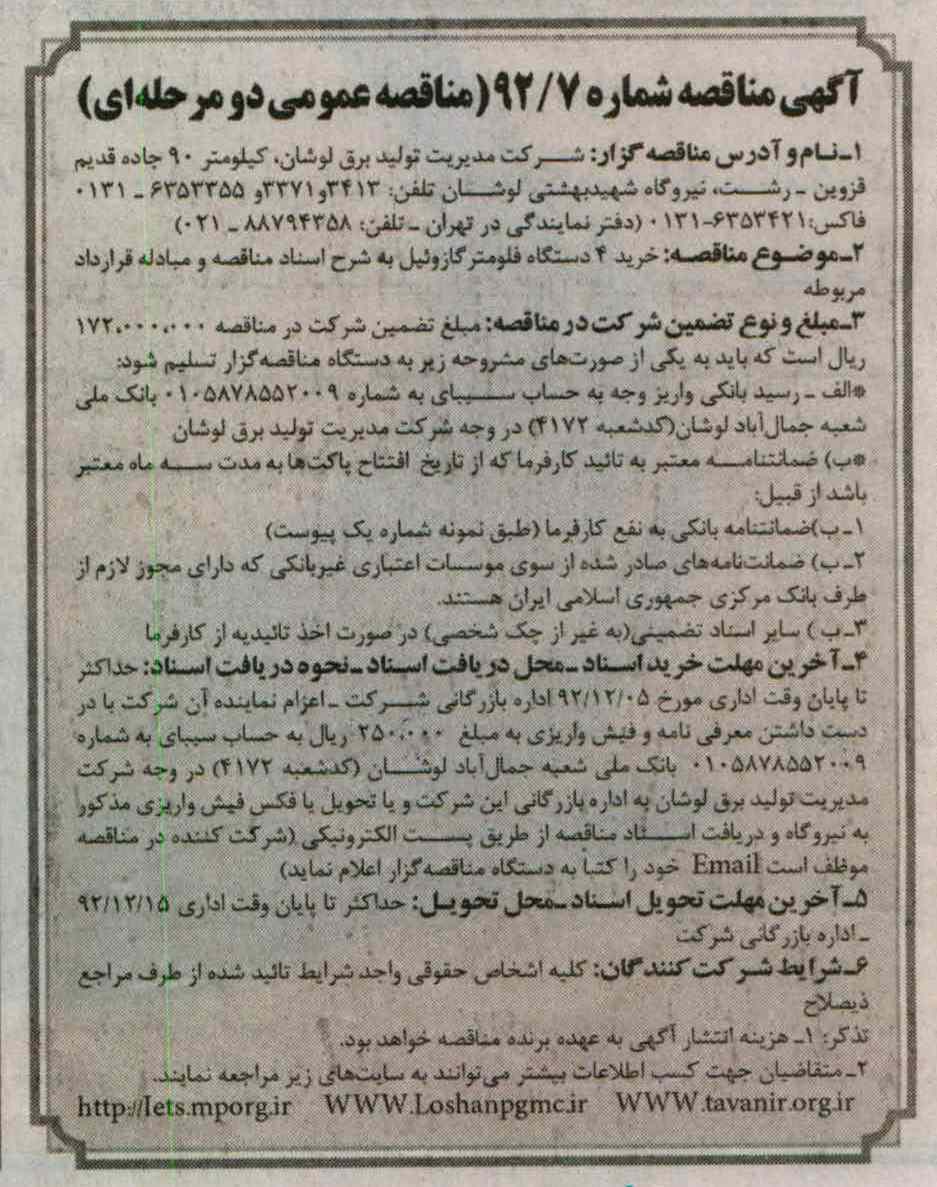 آگهی مناقصه شماره ۹۲/۷ (مناقصه عمومی دو مرحله‌ای)
۱ـ نـام و آدرس مناقصه گزار: شـرکت مدیریت تولید برق لوشان، کیلومتر ۹۰ جاده قدیم
قزوین ـ رشـت، نیروگاه شهیدبهشتی لوشـان تلفن: ۳۴۱۳و۳۳۷۱و ۶۳۵۳۳۵۵ ـ ۰۱۳۱
فاکس:۶۳۵۳۴۲۱-۰۱۳۱ (دفتر نمایندگی در تهران ـ تلفن: ۸۸۷۹۴۳۵۸ ـ ۰۲۱)
۲ـ موضـوع مناقصـه: خرید ۴ دستگاه فلومتر گازوئیل به شرح اسناد مناقصه و مبادله قرارداد
مربوطه
۳ـ مبلغ و نوع تضمین شرکت در مناقصه: مبلغ تضمین شرکت در مناقصه ۱۷۲،۰۰۰،۰۰۰
ریال است که باید به یکی از صورت‌های مشروحه زیر به دستگاه مناقصه‌گزار تسلیم شود:
*الف ـ رسید بانکی واریز وجه به حساب سـیبای به شماره ۰۱۰۵۸۷۸۵۵۲۰۰۹ بانک ملی
شعبه جمال‌آباد لوشان(کدشعبه ۴۱۷۲) در وجه شرکت مدیریت تولید برق لوشان
*ب) ضمانتنامـه معتبر به تائید کارفرما که از تاریخ افتتاح پاکت‌ها به مدت سـه ماه معتبر
باشد از قبیل:
۱ـ ب)ضمانتنامه بانکی به نفع کارفرما (طبق نمونه شماره یک پیوست)
۲ـ ب) ضمانت‌نامه‌های صادر شده از سوی موسسات اعتباری غیربانکی که دارای مجوز لازم از
طرف بانک مرکزی جمهوری اسلامی ایران هستند.
۳ـ ب ) سایر اسناد تضمینی(به غیر از چک شخصی) در صورت اخذ تائیدیه از کارفرما
۴ـ آخرین مهلت خرید اسـناد ـ محل دریافت اسـناد ـ نحوه دریافت اسـناد: حداکثر
تا پایان وقت اداری مورخ ۹۲/۱۲/۰۵ اداره بازرگانی شـرکت ـ اعزام نماینده آن شرکت با در
دست داشتن معرفی نامه و فیش واریزی به مبلغ ۲۵۰،۰۰۰ ریال به حساب سیبای به شماره
۰۱۰۵۸۷۸۵۵۲۰۰۹ بانک ملی شعبه جمال‌آباد لوشـان (کدشعبه ۴۱۷۲) در وجه شرکت
مدیریت تولید برق لوشان به اداره بازرگانی این شرکت و یا تحویل یا فکس فیش واریزی مذکور
به نیروگاه و دریافت اسـناد مناقصه از طریق پسـت الکترونیکی (شرکت کننده در مناقصه
موظف است Email خود را کتبا به دستگاه مناقصه‌گزار اعلام نماید)
۵ـ آخرین مهلت تحویل اسـناد ـ محل تحویـل: حداکثر تا پایان وقت اداری ۹۲/۱۲/۱۵
ـ اداره بازرگانی شرکت
۶ـ شرایط شـرکت کنندگان: کلیه اشخاص حقوقی واجد شرایط تائید شده از طرف مراجع
ذیصلاح
تذکر: ۱ـ هزینه انتشار آگهی به عهده برنده مناقصه خواهد بود.
۲ـ متقاضیان جهت کسب اطلاعات بیشتر می‌توانند به سایت‌های زیر مراجعه نمایند.
http://Iets.mporg.ir WWW.Loshanpgmc.ir WWW.tavanir.org.ir